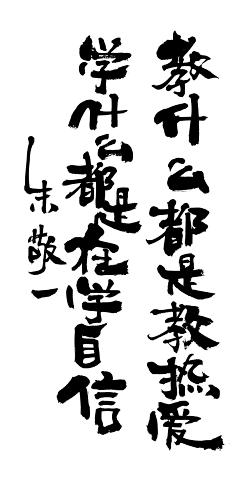 教什么都是教热爱
学什么都是在学自信
朱敬一